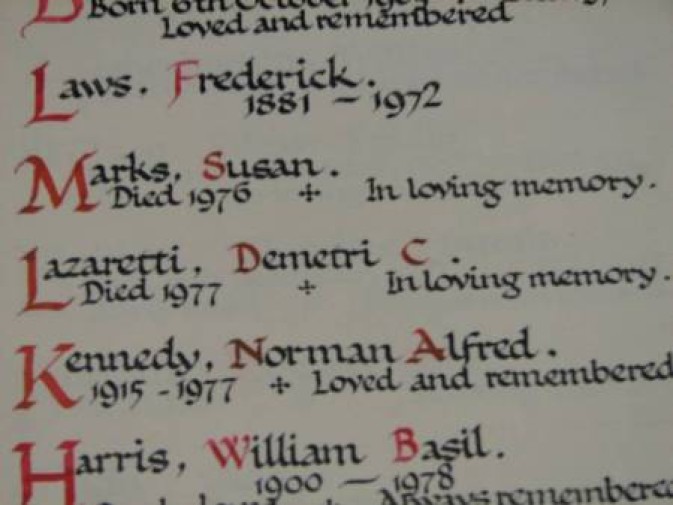 Born 6th October
Loved and remembered
Laws. Frederick.
1881 – 1972
Marks, Susan.
Died 1976 + In loving memory.
Lazaretti, Demetri C.
Died 1977 + In loving memory.
Kennedy, Norman Alfred.
1915 - 1977 + Loved and remembered
Harris, William Basil.
1900 — 1978
Always remembered